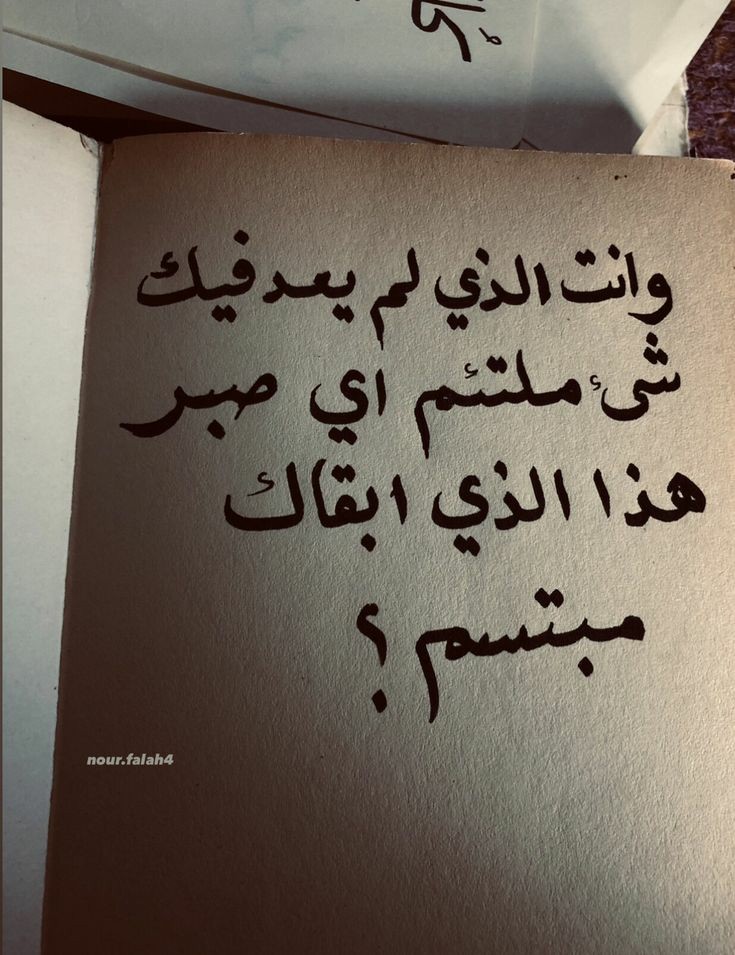 وانت الذي لم يعد فيك
شئ ملتئم اي صبر
هذا الذي ابقاك
مبتسم ؟
nour.falah4